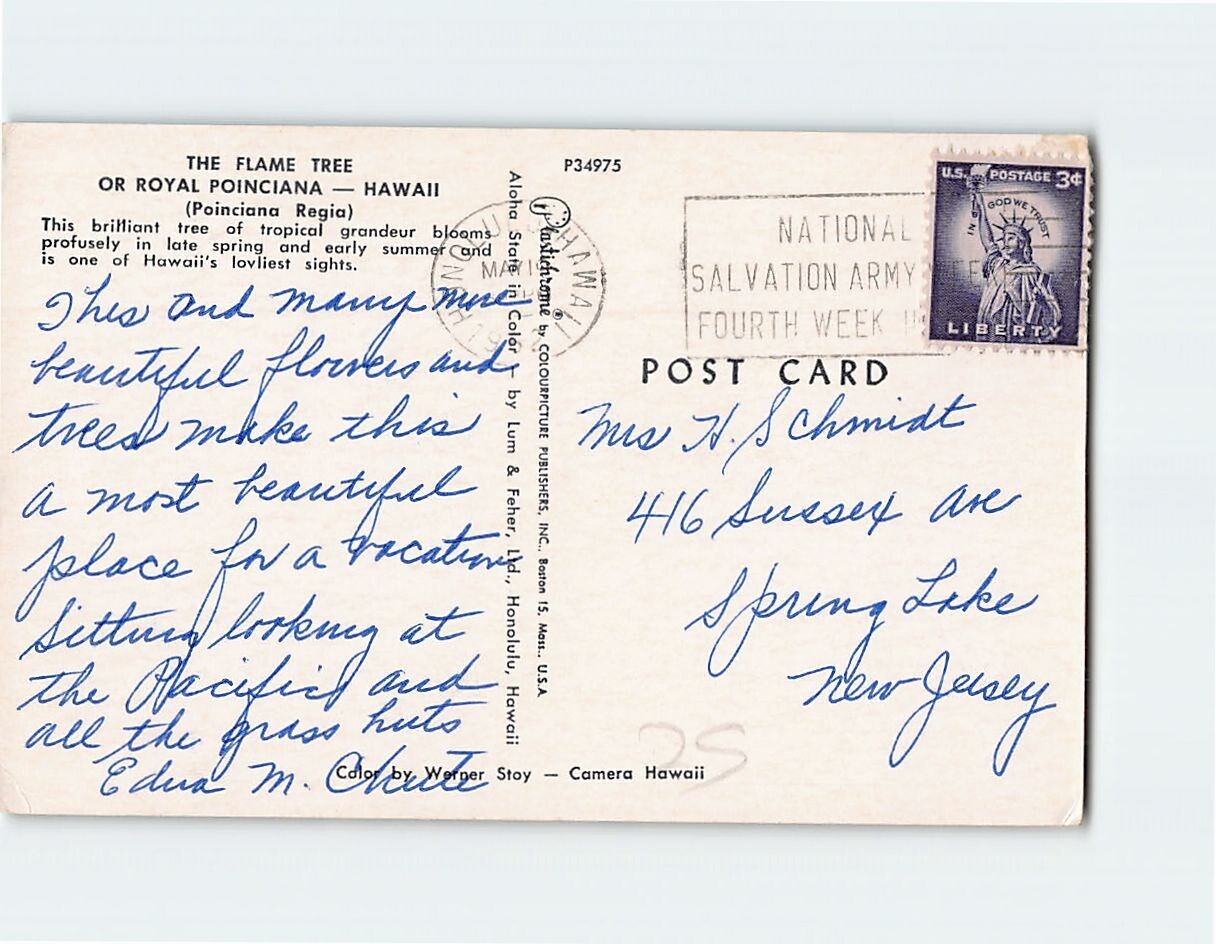 THE FLAME TREE
OR ROYAL POINCIANA — HAWAII
(Poinciana Regia)
This brilliant tree of tropical grandeur blooms
profusely in late spring and early summer and
is one of Hawaii's lovliest sights.
This and many more
beautiful flowers and
trees make this
a most beautiful
place for a vacation
Sitting looking at
the Pacific and
all the grass huts
Edna M. Chute
Color by Werner Stoy — Camera Hawaii
Aloha State in Color — by Lum & Feher, Ltd., Honolulu, Hawaii
Plastichrome® by COLOURPICTURE PUBLISHERS, INC., Boston 15, Mass., U.S.A
P34975
HONOLULU HAWAII
MAY
NATIONAL
SALVATION ARMY
FOURTH WEEK
U.S. POSTAGE 3¢
IN GOD WE TRUST
LIBERTY
POST CARD
Mrs H. Schmidt
416 Sussex Ave
Spring Lake
New Jersey
25